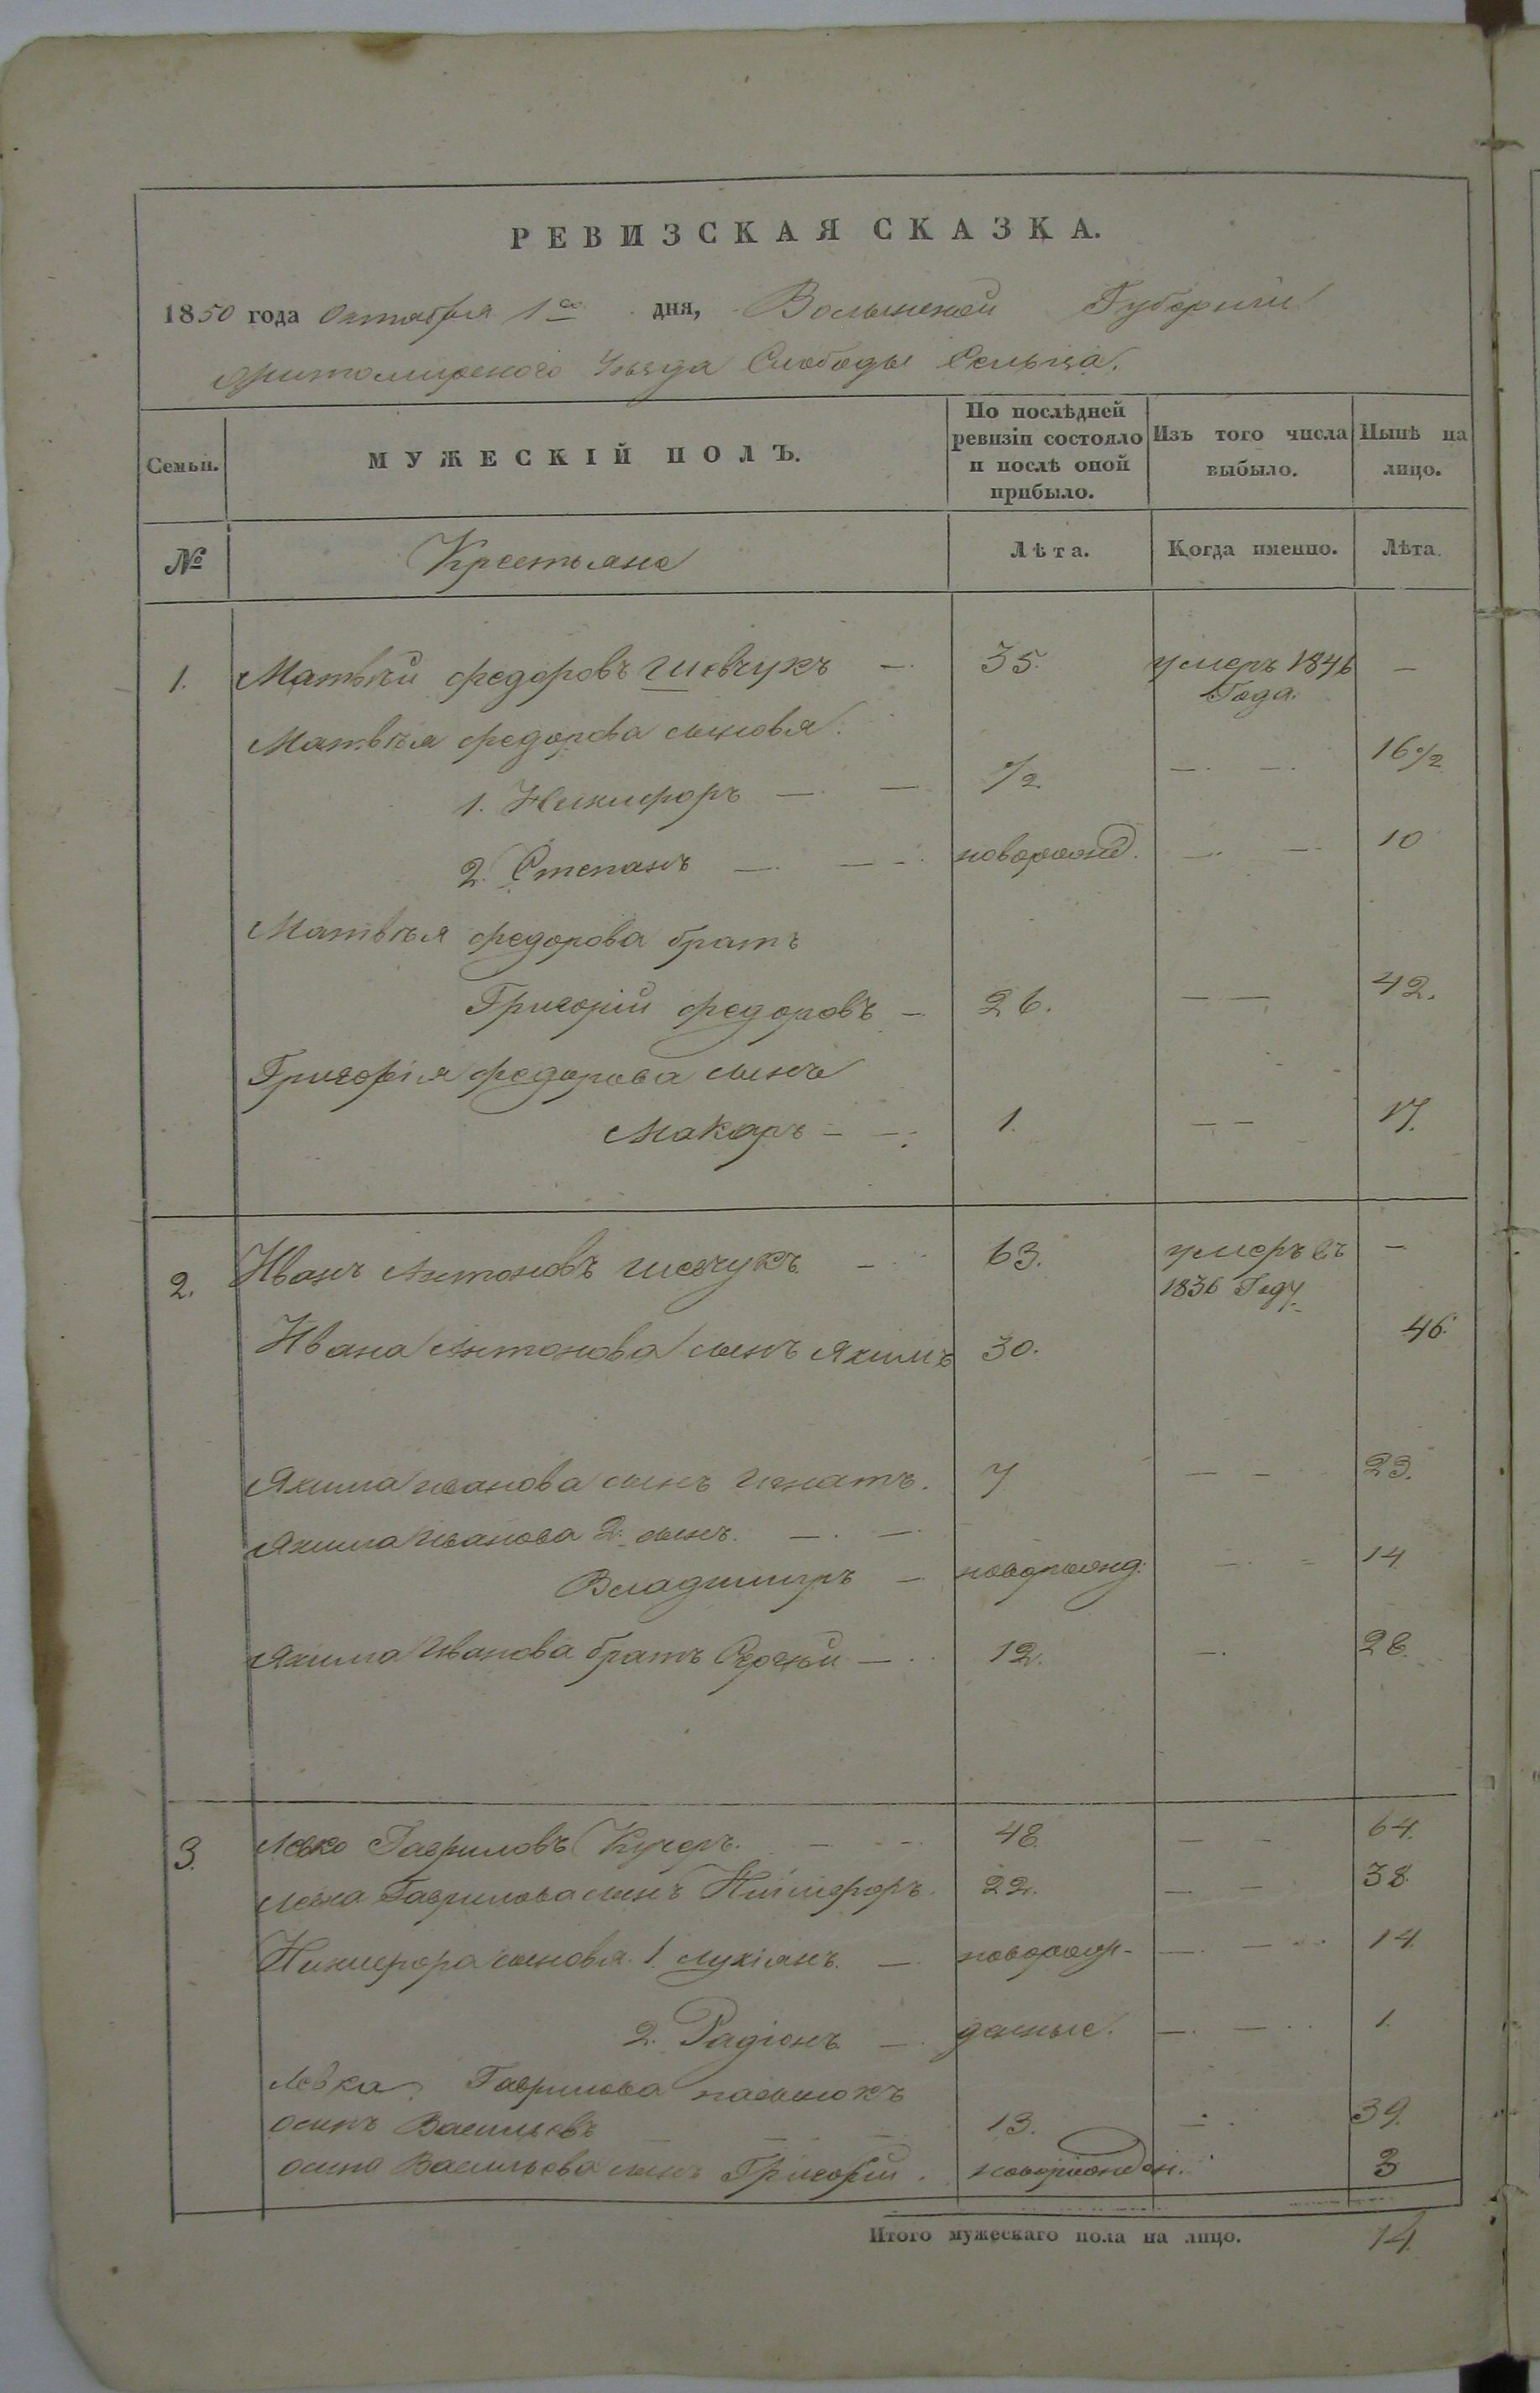 РЕВИЗСКАЯ СКАЗКА.
1850 года Октября 1го дня, Волынской Губернии
Житомирского Уѣзда Слободы Сельца.
Семьи. МУЖЕСКІЙ ПОЛЪ. По послѣдней ревизіи состояло и послѣ оной прибыло. Изъ того числа выбыло. Нынѣ на лицо.
№ Крестьяне Лѣта. Когда именно. Лѣта.
1. Матвѣй Федоровъ Шевчукъ — 35. умеръ 1846 Года. —
Матвѣя Федорова сыновья:
1. Никифоръ — — 1/2 — — 16 1/2
2. Степанъ — — — новорожд. — — 10
Матвѣя Федорова братъ
Григорій Федоровъ — 26. — — 42.
Григорія Федорова сынъ
Макаръ — — 1. — — 17.
2. Иванъ Антоновъ Шевчукъ — 63. умеръ въ 1836 Году. —
Ивана Антонова сынъ Якимъ 30. 46.
Якима Иванова сынъ Игнатъ. 7 — — 23.
Якима Иванова 2. сынъ. — —
Владимиръ — новорожд: — — 14
Якима Иванова братъ Сергѣй — 12. — 28.
3. Левко Гавриловъ Кучеръ. — — 48. — — 64.
Левка Гаврилова сынъ Никифоръ. 22. — — 38.
Никифора сыновья 1. Лукіянъ. — новорож- — — 14.
2. Радіонъ — денные. — — 1.
Левка Гаврилова пасынокъ
Осипъ Васильевъ — — — 13. — 39.
Осипа Васильева сынъ Григорій. новорожден. 3
Итого мужескаго пола на лицо. 14